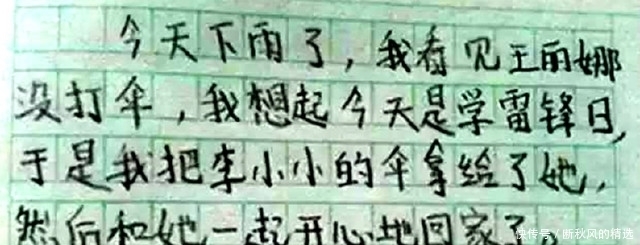 今天下雨了，我看见王丽娜
没打伞，我想起今天是学雷锋日，
于是我把李小小的伞拿给了她，
然后和她一起开心地回家了
快传号／断秋风的精选